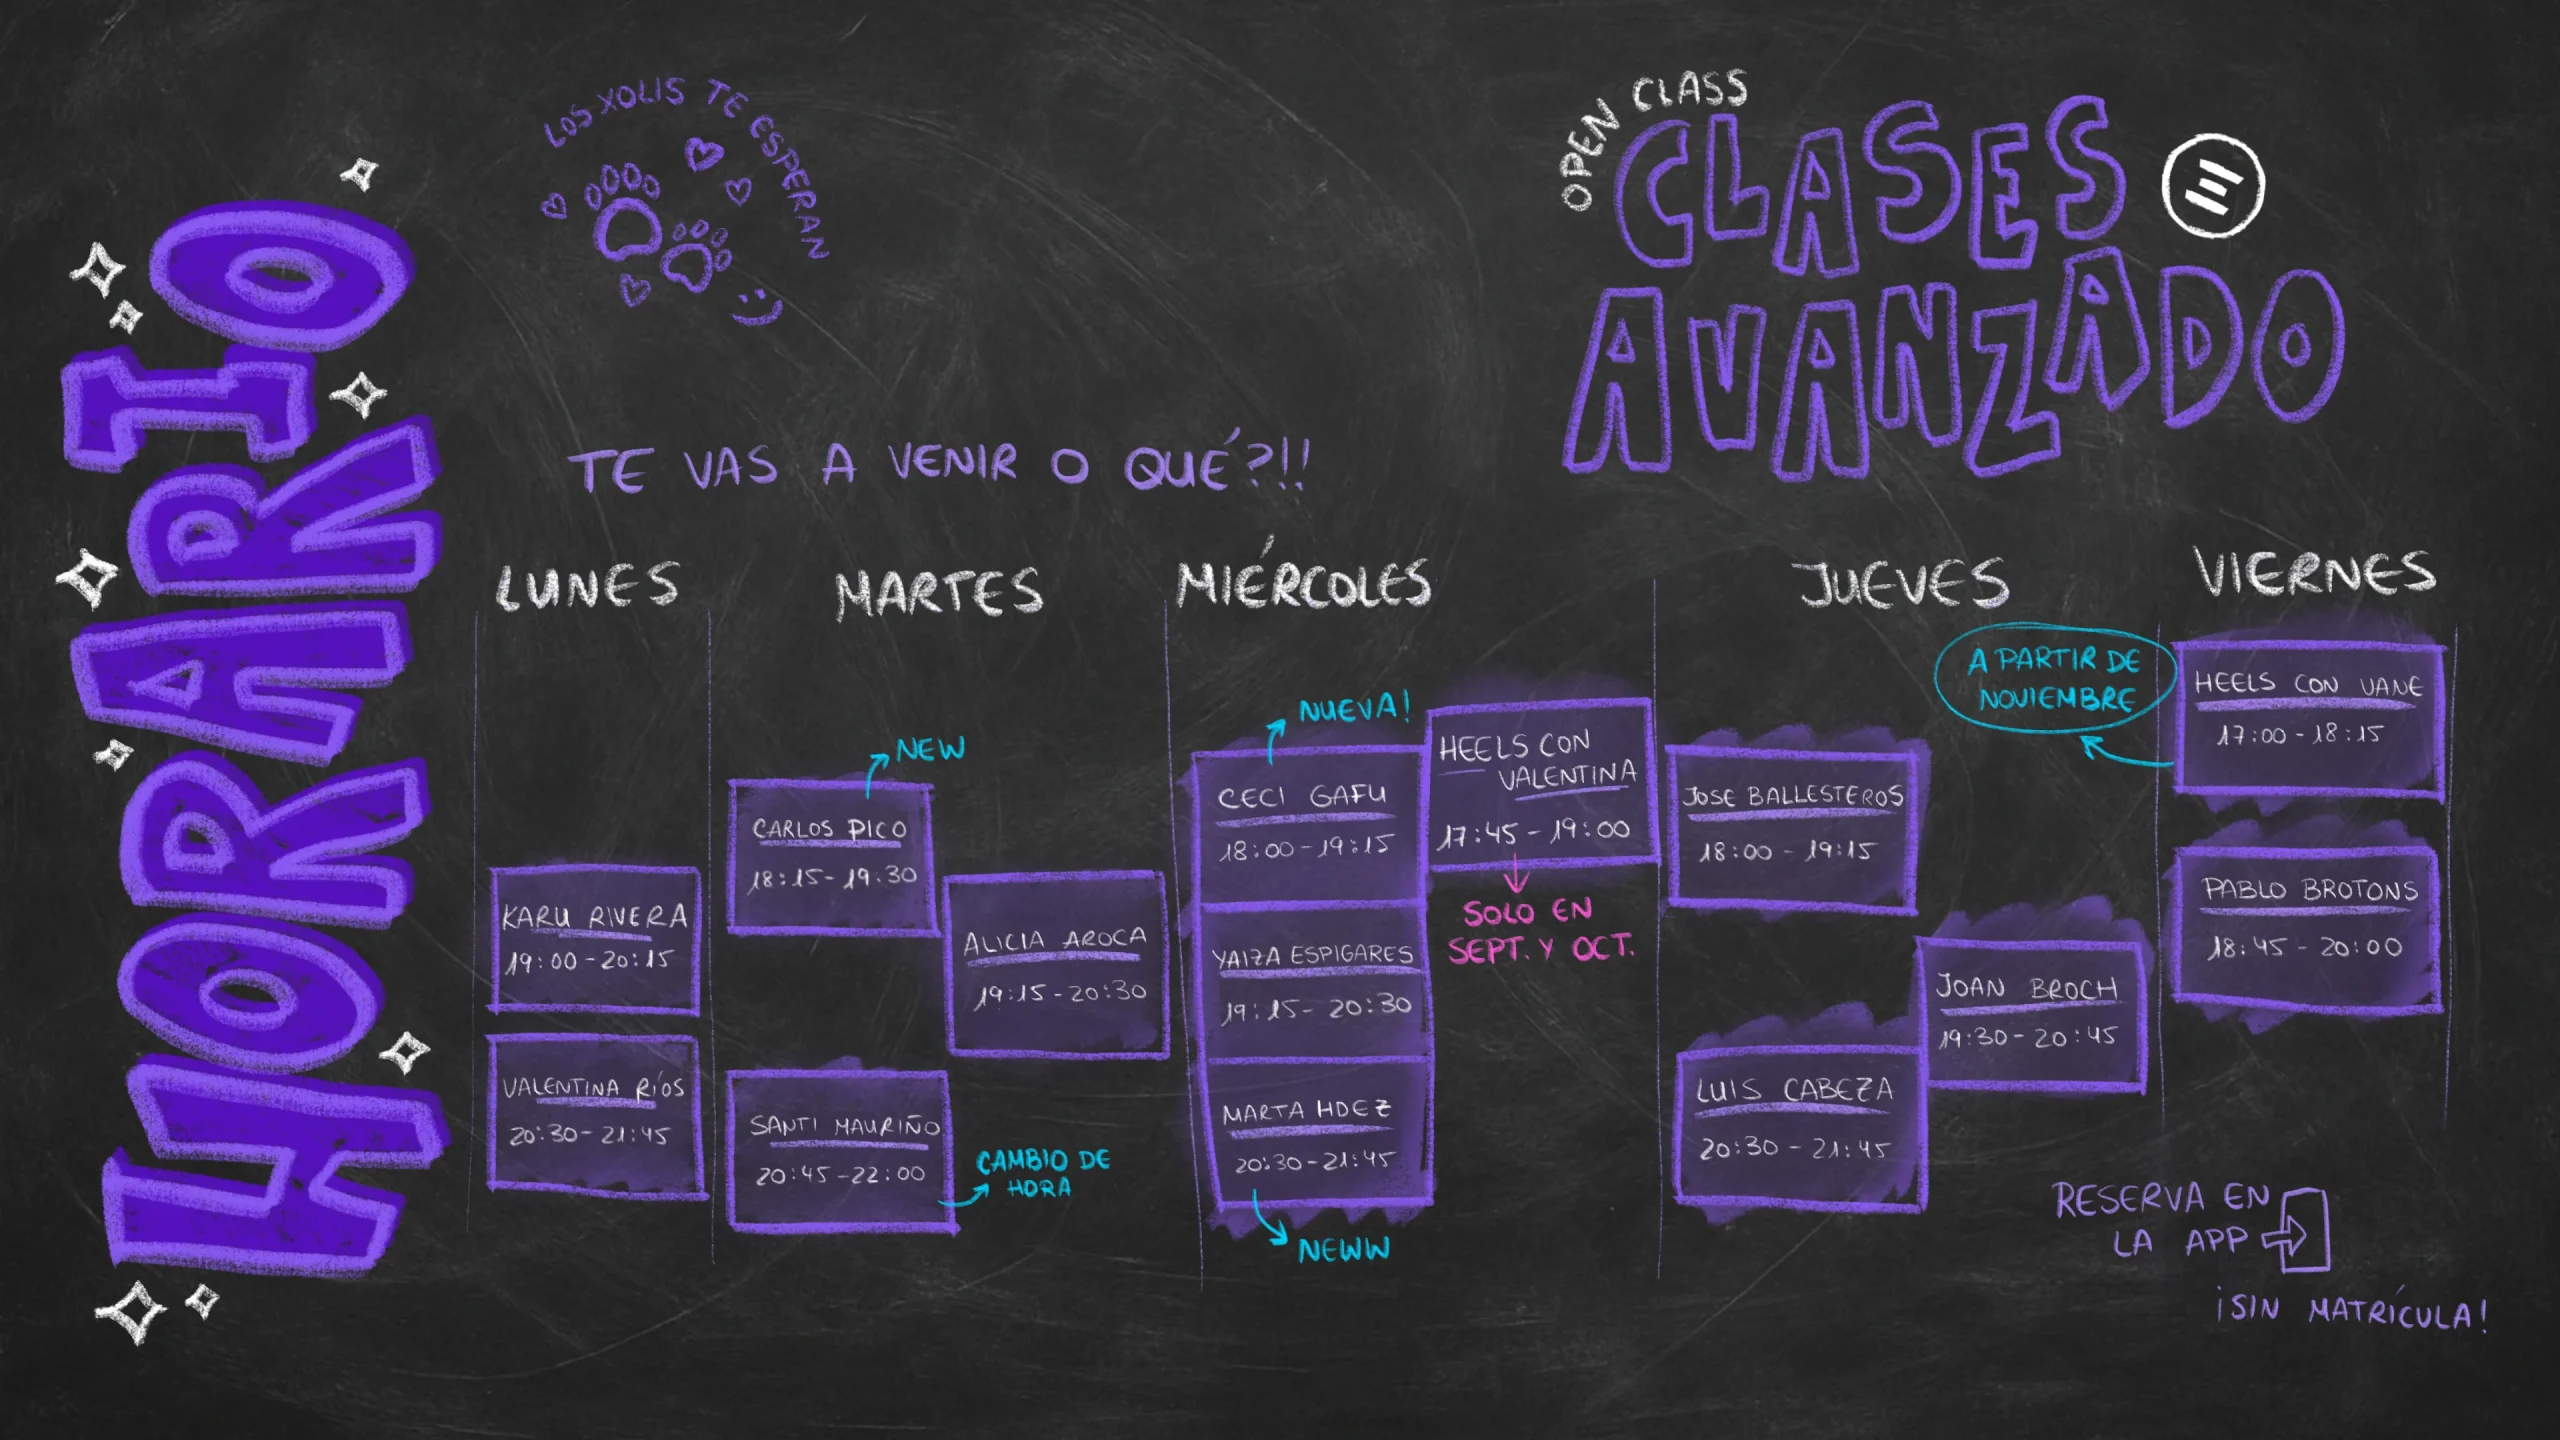 HORARIO
LOS XOLIS TE ESPERAN
OPEN CLASS
CLASES
AVANZADO
TE VAS A VENIR O QUÉ?!!
LUNES
KARU RIVERA
19:00-20:15
VALENTINA RÍOS
20:30-21:45
MARTES
NEW
CARLOS PICO
18:15-19:30
ALICIA AROCA
19:15-20:30
SANTI MAURIÑO
20:45-22:00
CAMBIO DE
HORA
MIÉRCOLES
NUEVA!
CECI GAFU
18:00-19:15
HEELS CON
VALENTINA
17:45-19:00
SOLO EN
SEPT. Y OCT.
YAIZA ESPIGARES
19:15-20:30
MARTA HDEZ
20:30-21:45
NEWW
JUEVES
JOSE BALLESTEROS
18:00-19:15
JOAN BROCH
19:30-20:45
LUIS CABEZA
20:30-21:45
VIERNES
A PARTIR DE
NOVIEMBRE
HEELS CON VANE
17:00-18:15
PABLO BROTONS
18:45-20:00
RESERVA EN
LA APP
¡SIN MATRÍCULA!